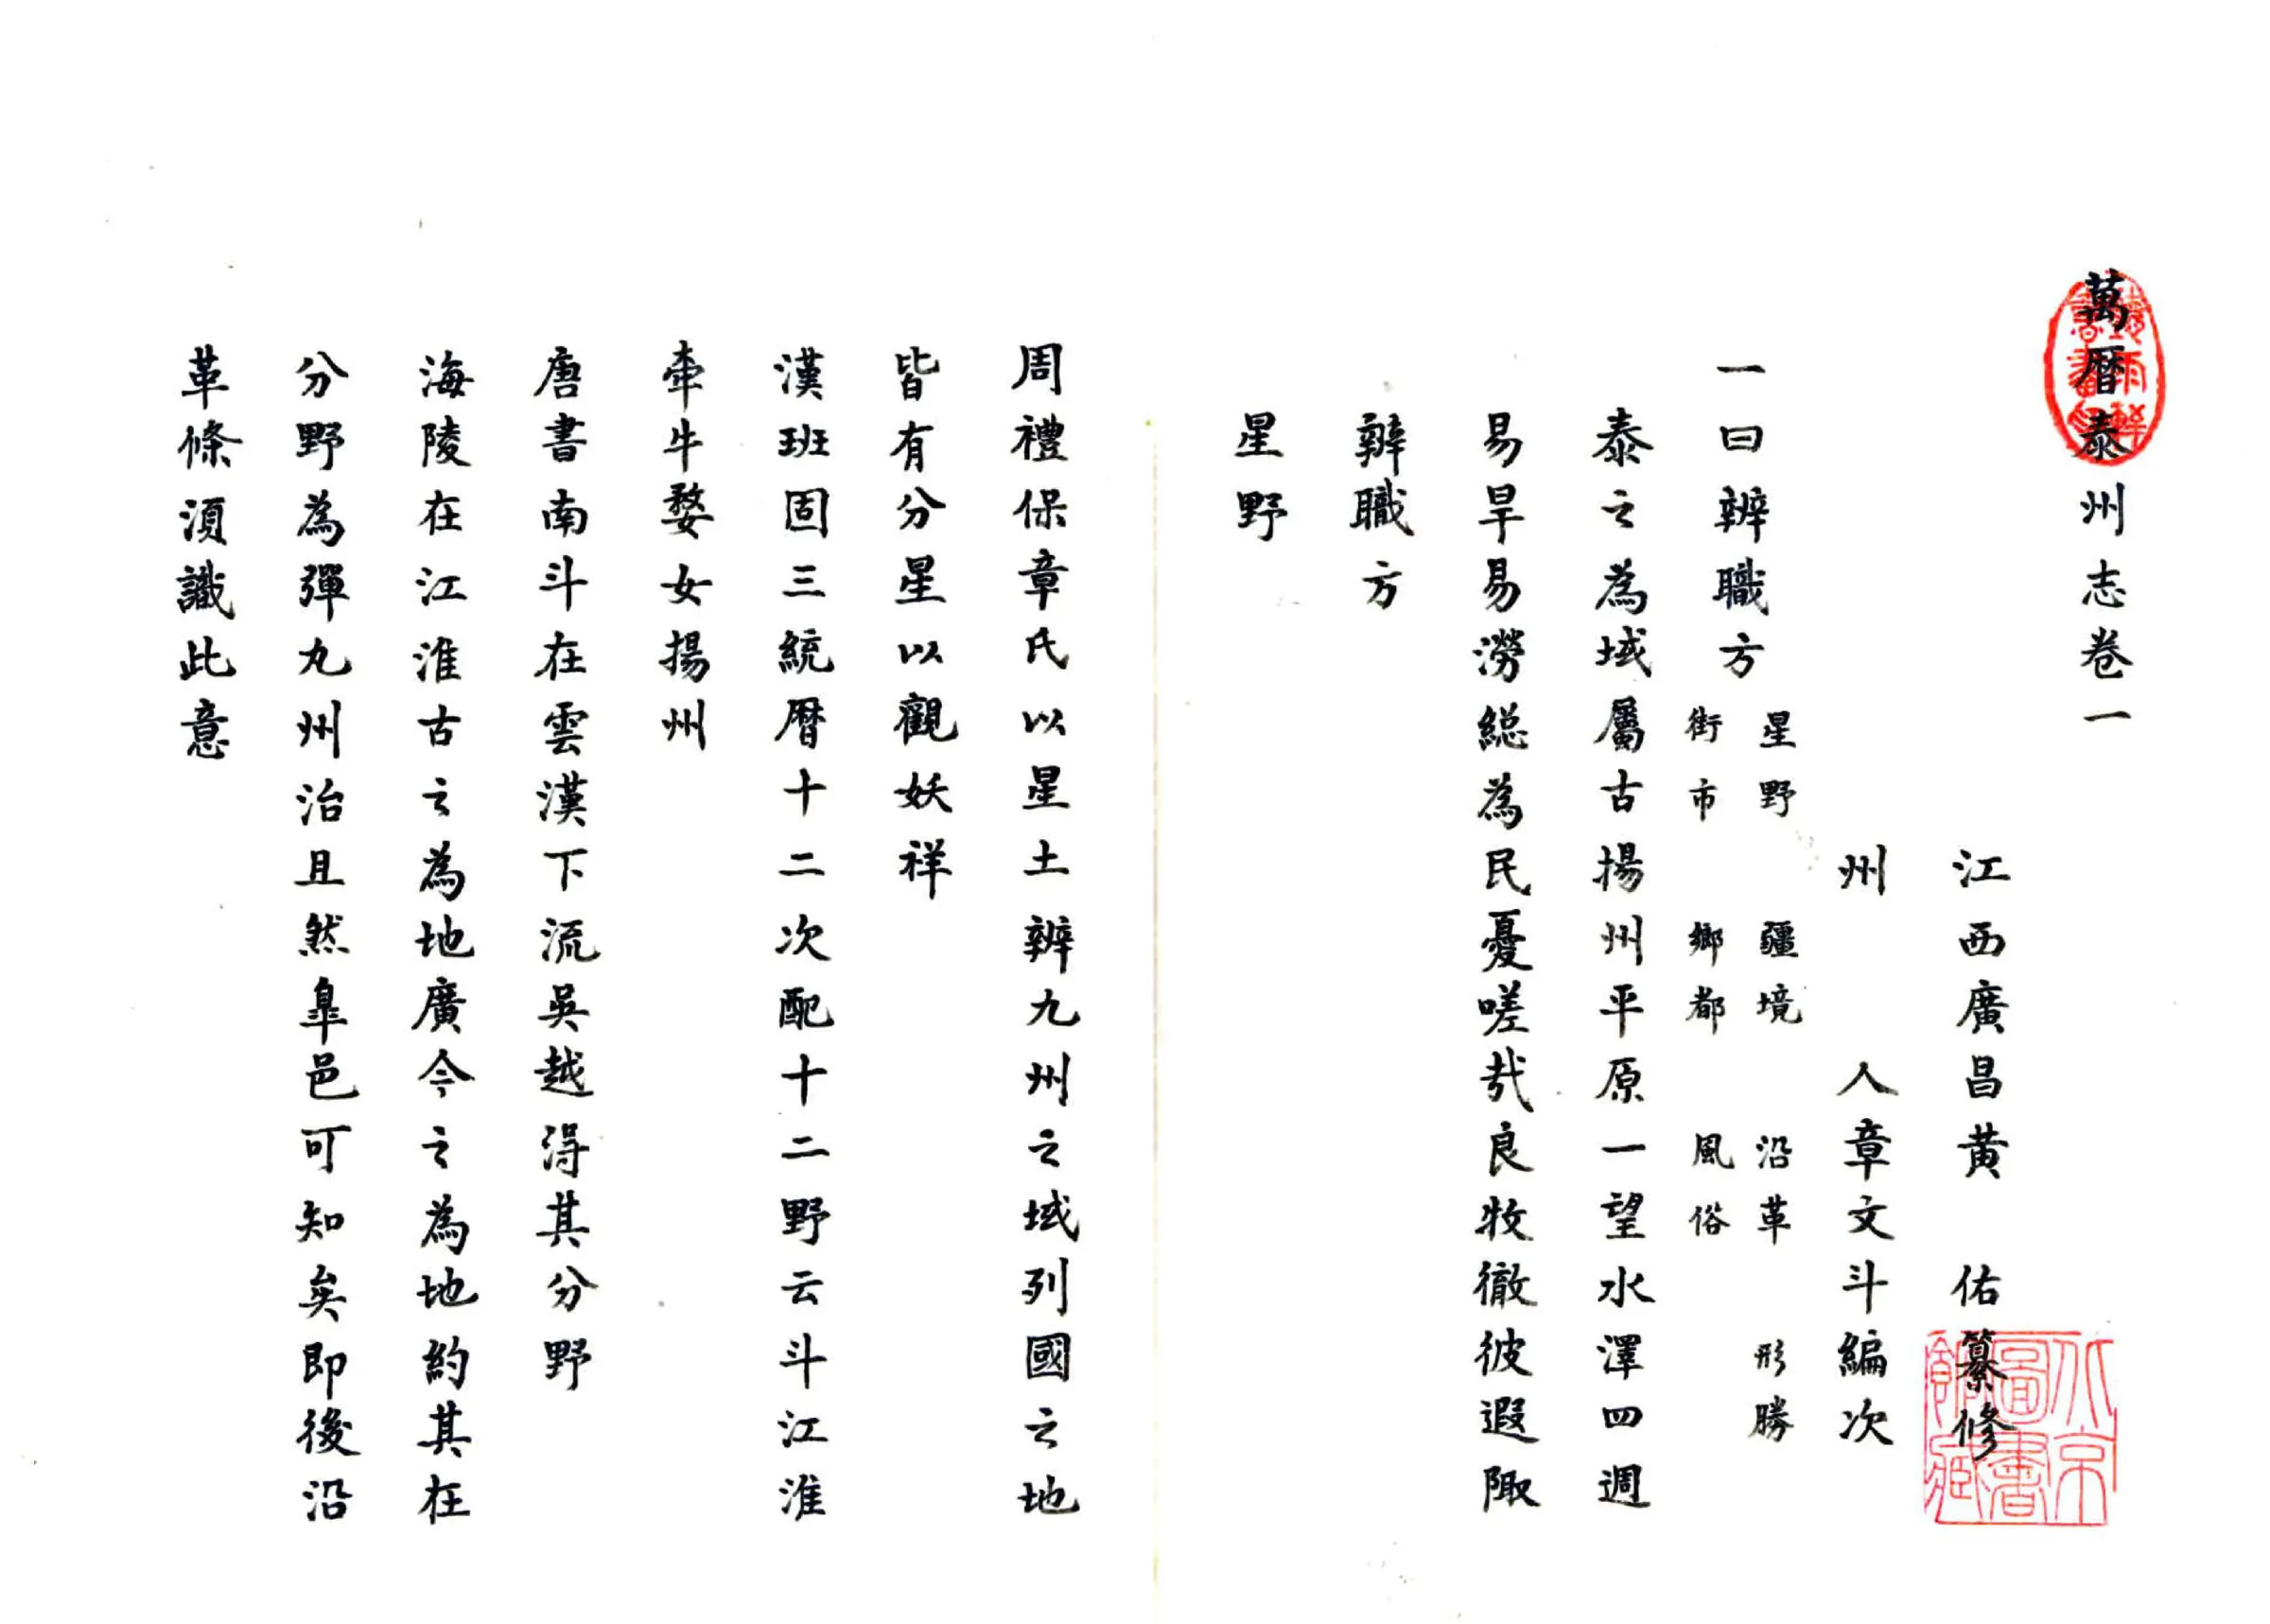 萬曆泰州志卷一
江西廣昌黄佑纂修
州人章文斗編次
一曰辨職方 星野 疆境 沿革 形勝
街市 鄉都 風俗
泰之為域屬古揚州平原一望水澤四週
易旱易澇総為民憂嗟哉良牧徹彼遐陬
辨職方
星野
周禮保章氏以星土辨九州之域列國之地
皆有分星以觀妖祥
漢班固三統曆十二次配十二野云斗江淮
牽牛婺女揚州
唐書南斗在雲漢下流吳越得其分野
海陵在江淮古之為地廣今之為地約其在
分野為彈丸州治且然臯邑可知矣即後沿
革條湏識此意
北京圖書館藏